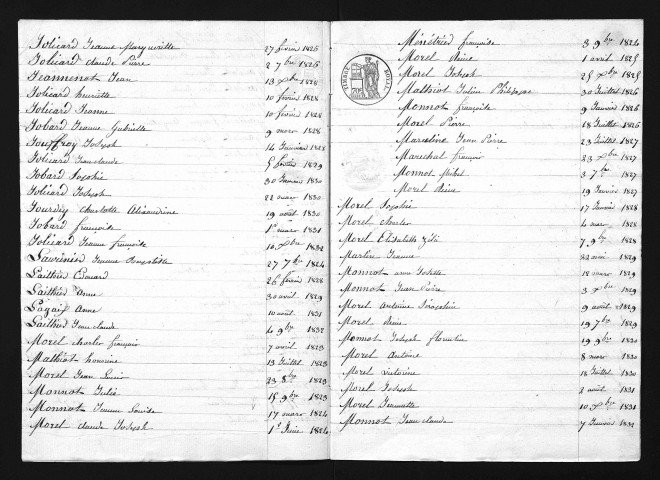 Joliard Jeanne Marguerite 27 février 1826
Joliard claude Pierre 2 7bre 1826
Jeanninot Jean 13 xbre 1828
Joliard henriette 10 février 1828
Joliard Jeanne 10 février 1828
Jobard Jeanne Gabrielle 9 mars 1828
Jouffroy Joseph 14 Janvier 1828
Joliard Jean claude 5 février 1829
Jobard Sophie 30 Janvier 1830
Joliard Joseph 22 mars 1830
Jourdy charlotte Alexandrine 19 avril 1830
Jobard françoise 1er mars 1831
Joliard Jeanne françoise 10 xbre 1832
Jeanne 27 7bre 1824
Laithier Edouard 26 février 1828
Laithier Anne 30 avril 1829
Anne 10 août 1831
Laithier Jean claude 4 9bre 1832
Morel charles françois 7 avril 1823
Mathiot honorine 13 Juillet 1823
Morel Jean 23 8bre 1823
Monnot Julie 15 9bre 1823
Monnot Jeanne Louise 17 mars 1824
Morel claude Joseph 1er Juin 1824
Ménétrier françoise 3 9bre 1824
Morel Reine 1 avril 1825
Morel Joseph 25 xbre 1825
TIMBRE ROYAL
Mathiot Julien Philippe 30 Juillet 1826
Monnot françoise 9 Janvier 1826
Morel Pierre 18 Juillet 1826
Jean Pierre 23 Juillet 1827
Marechal françois 23 xbre 1827
Monnot 3 7bre 1827
Morel Reine 19 Janvier 1827
Morel Sophie 17 Janvier 1828
Morel charles 4 mars 1828
Morel Elisabeth 7 9bre 1828
Martin Jeanne 22 avril 1829
Monnot anne Josette 18 mars 1829
Monnot Jean Pierre 3 xbre 1829
Morel Antoine Séraphin 9 août 1829
Morel Reine 19 7bre 1829
Monnot Joseph florentin 19 9bre 1830
Morel Antoine 8 mars 1830
Morel Victorine 18 Juillet 1830
Morel Joseph 2 août 1831
Morel Jeannette 10 xbre 1831
Monnot Jean claude 7 Janvier 1831